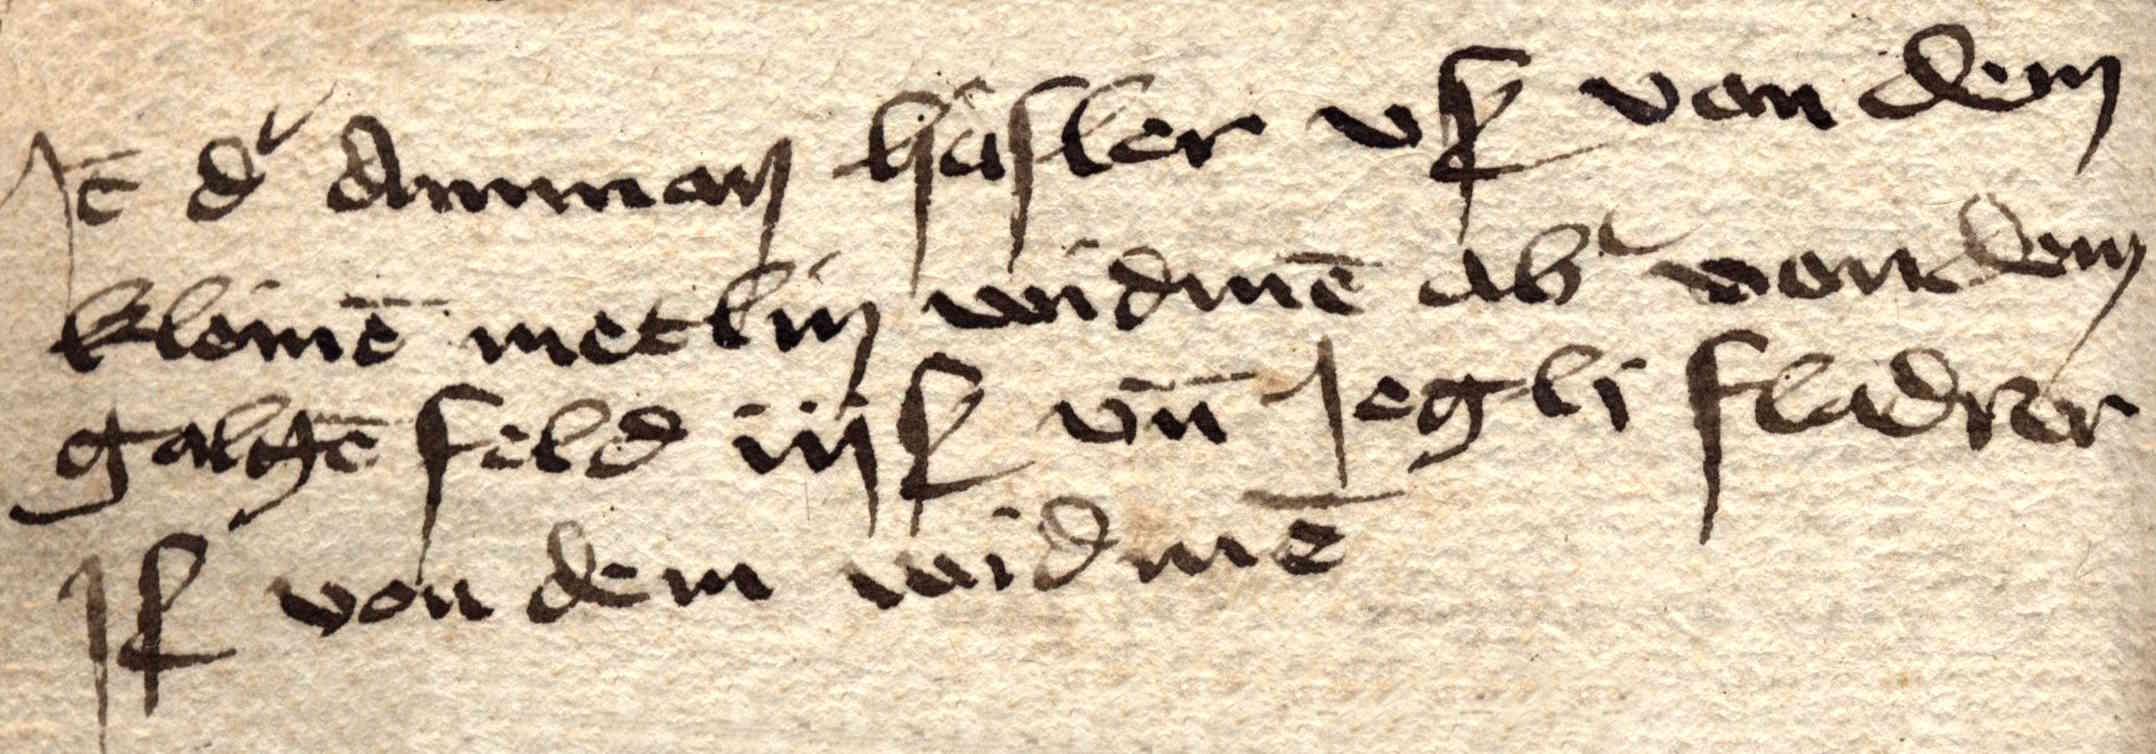 Jt̄ d' Amman häsler v ß von dem
kleinē metlin widmē ab' von dem
galgē feld iij ß vn̄ Jegli fladrer
J ß von dem widmē